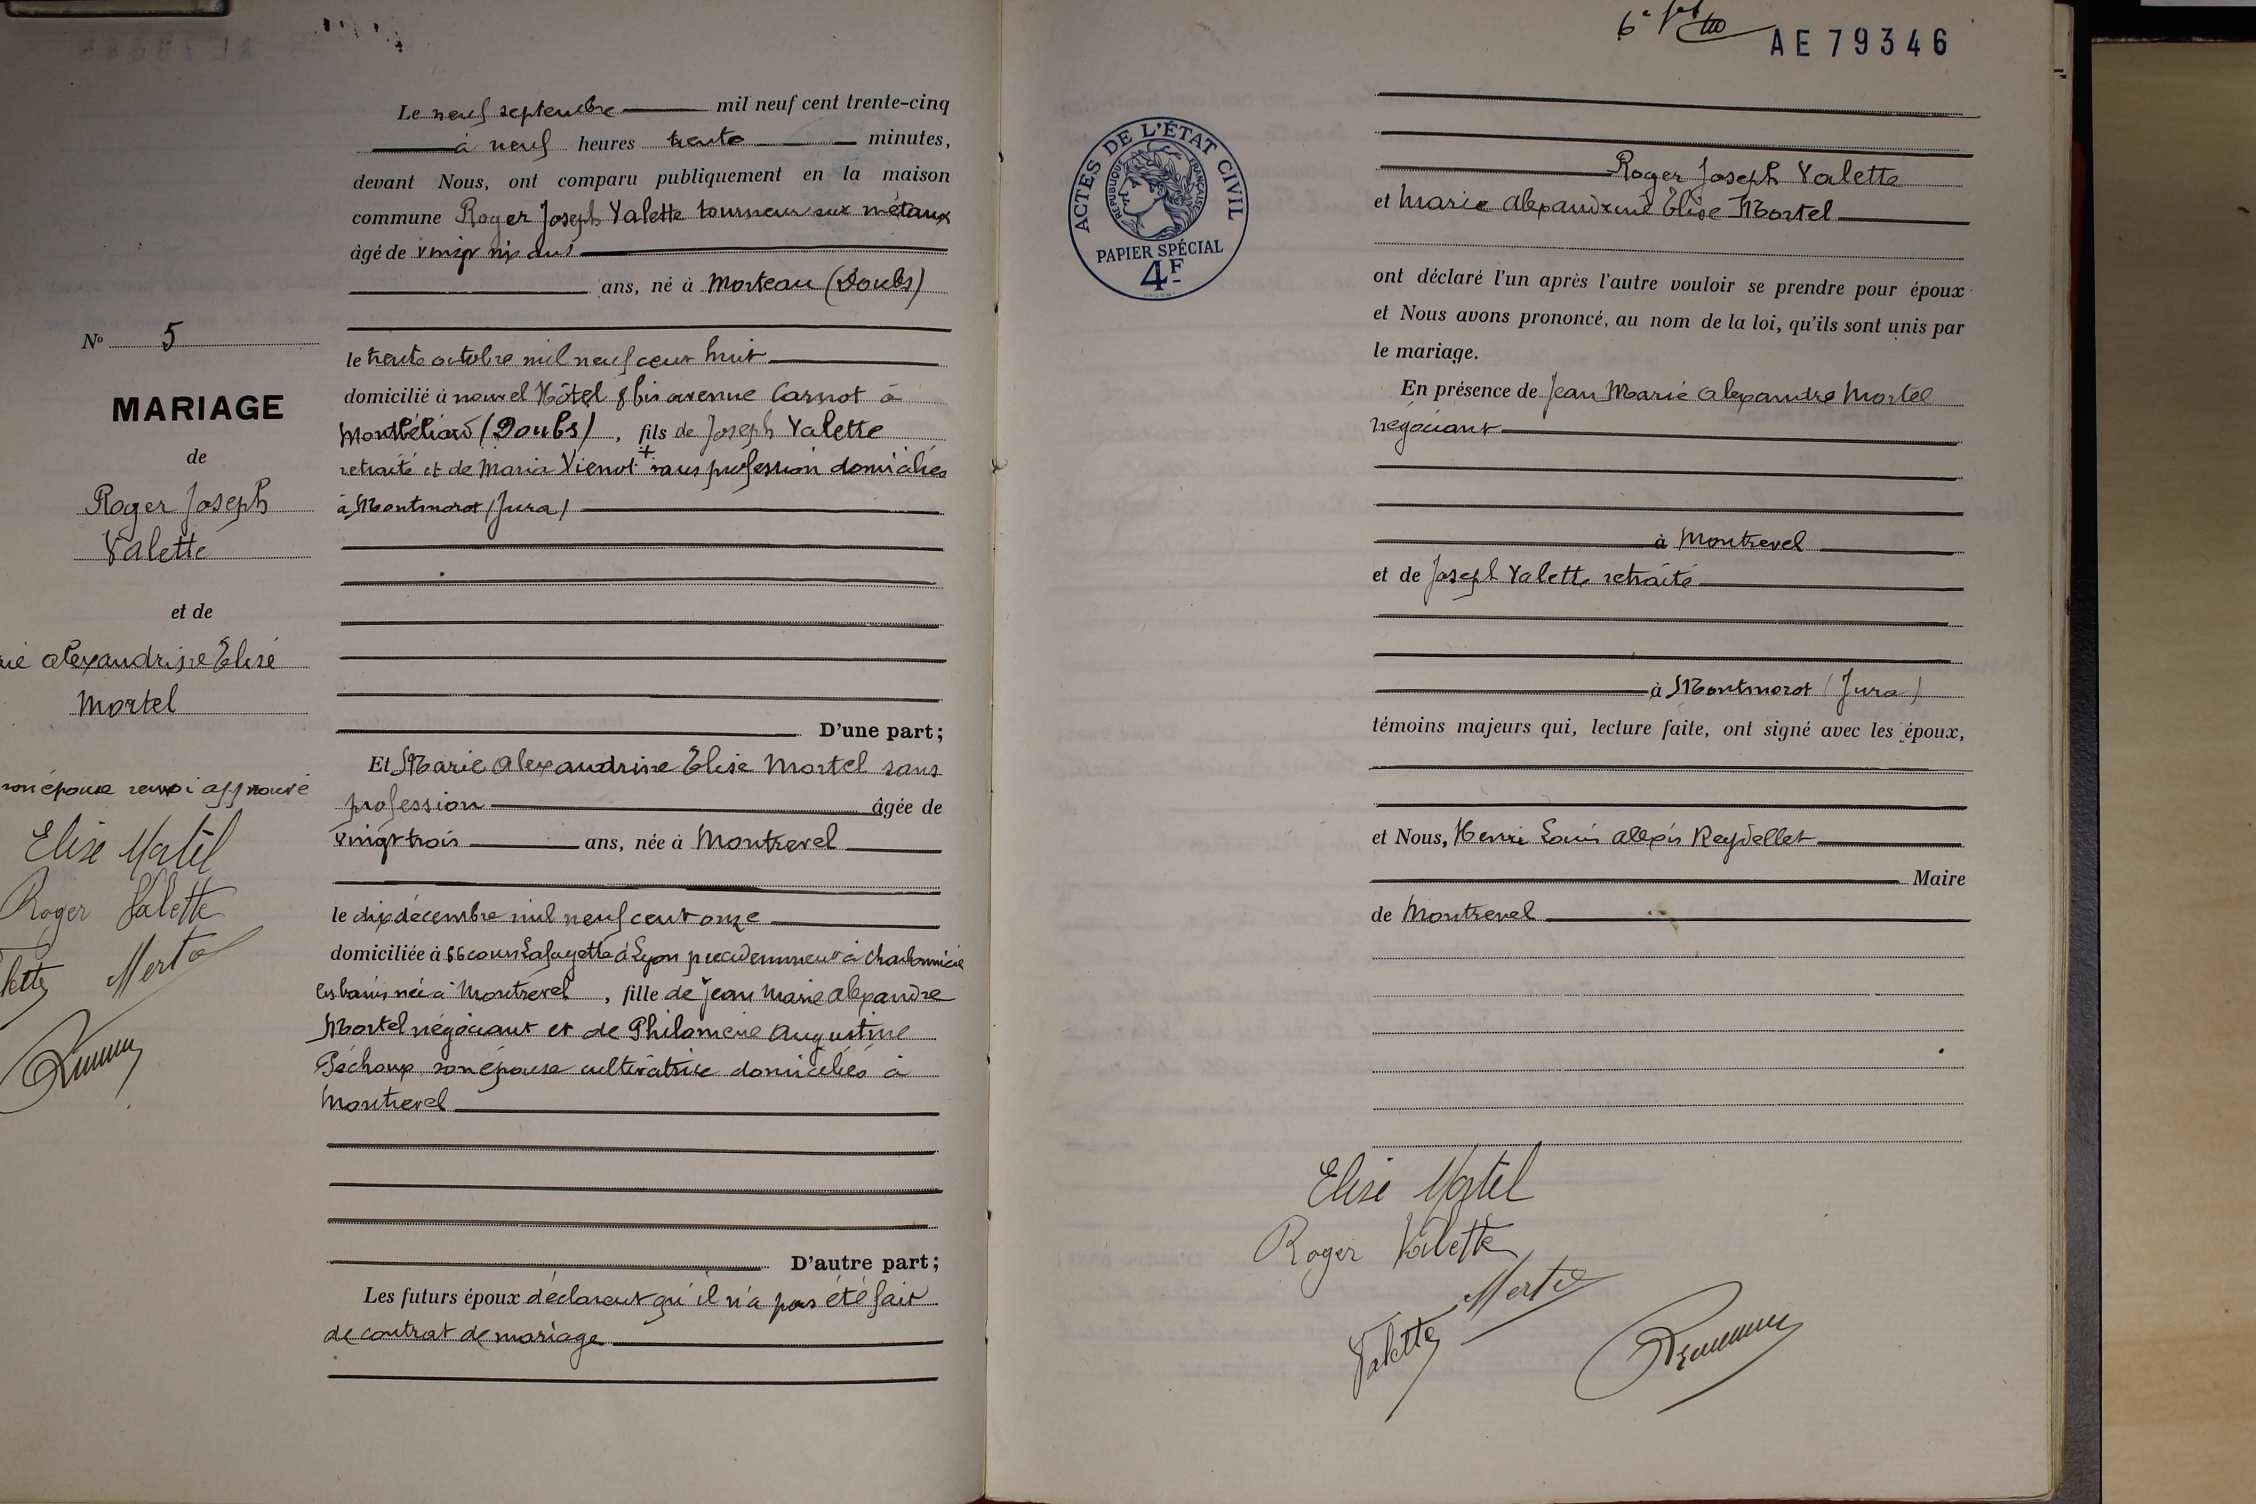 Le neuf septembre mil neuf cent trente-cinq
à neuf heures trente minutes,
devant Nous, ont comparu publiquement en la maison
commune Roger Joseph Valette tourneur sur métaux
âgé de vingt six ans
ans, né à Morteau (Doubs)
le trente octobre mil neuf cent huit
domicilié à nouvel Hôtel 8 bis avenue Carnot à
Montbéliard (Doubs), fils de Joseph Valette
retraité et de Maria Vienot + sans profession domiciliés
à Montmorot (Jura)
D'une part;
Et Marie Alexandrine Elise Mortel sans
profession âgée de
vingt trois ans, née à Montrevel
le dix décembre mil neuf cent onze
domiciliée à 66 cours Lafayette à Lyon précédemment à Charbonnières
les bains née à Montrevel, fille de Jean Marie Alexandre
Mortel négociant et de Philomène Augustine
Péchoux son épouse cultivatrice domiciliés à
Montrevel
D'autre part;
Les futurs époux déclarent qu'il n'a pas été fait
de contrat de mariage
Nº 5
MARIAGE
de
Roger Joseph
Valette
et de
Alexandrine Elise
Mortel
son épouse renvoi approuvé
Elise Mortel
Roger Valette
Mortel
AE 79346
ACTES DE L'ÉTAT CIVIL
RÉPUBLIQUE FRANÇAISE
PAPIER SPÉCIAL
4F
Roger Joseph Valette
et Marie Alexandrine Elise Mortel
ont déclaré l'un après l'autre vouloir se prendre pour époux
et Nous avons prononcé, au nom de la loi, qu'ils sont unis par
le mariage.
En présence de Jean Marie Alexandre Mortel
négociant
à Montrevel
et de Joseph Valette retraité
à Montmorot (Jura)
témoins majeurs qui, lecture faite, ont signé avec les époux,
et Nous, Henri Louis Alexis Reydellet
Maire
de Montrevel
Elise Mortel
Roger Valette
Mortel
Valette